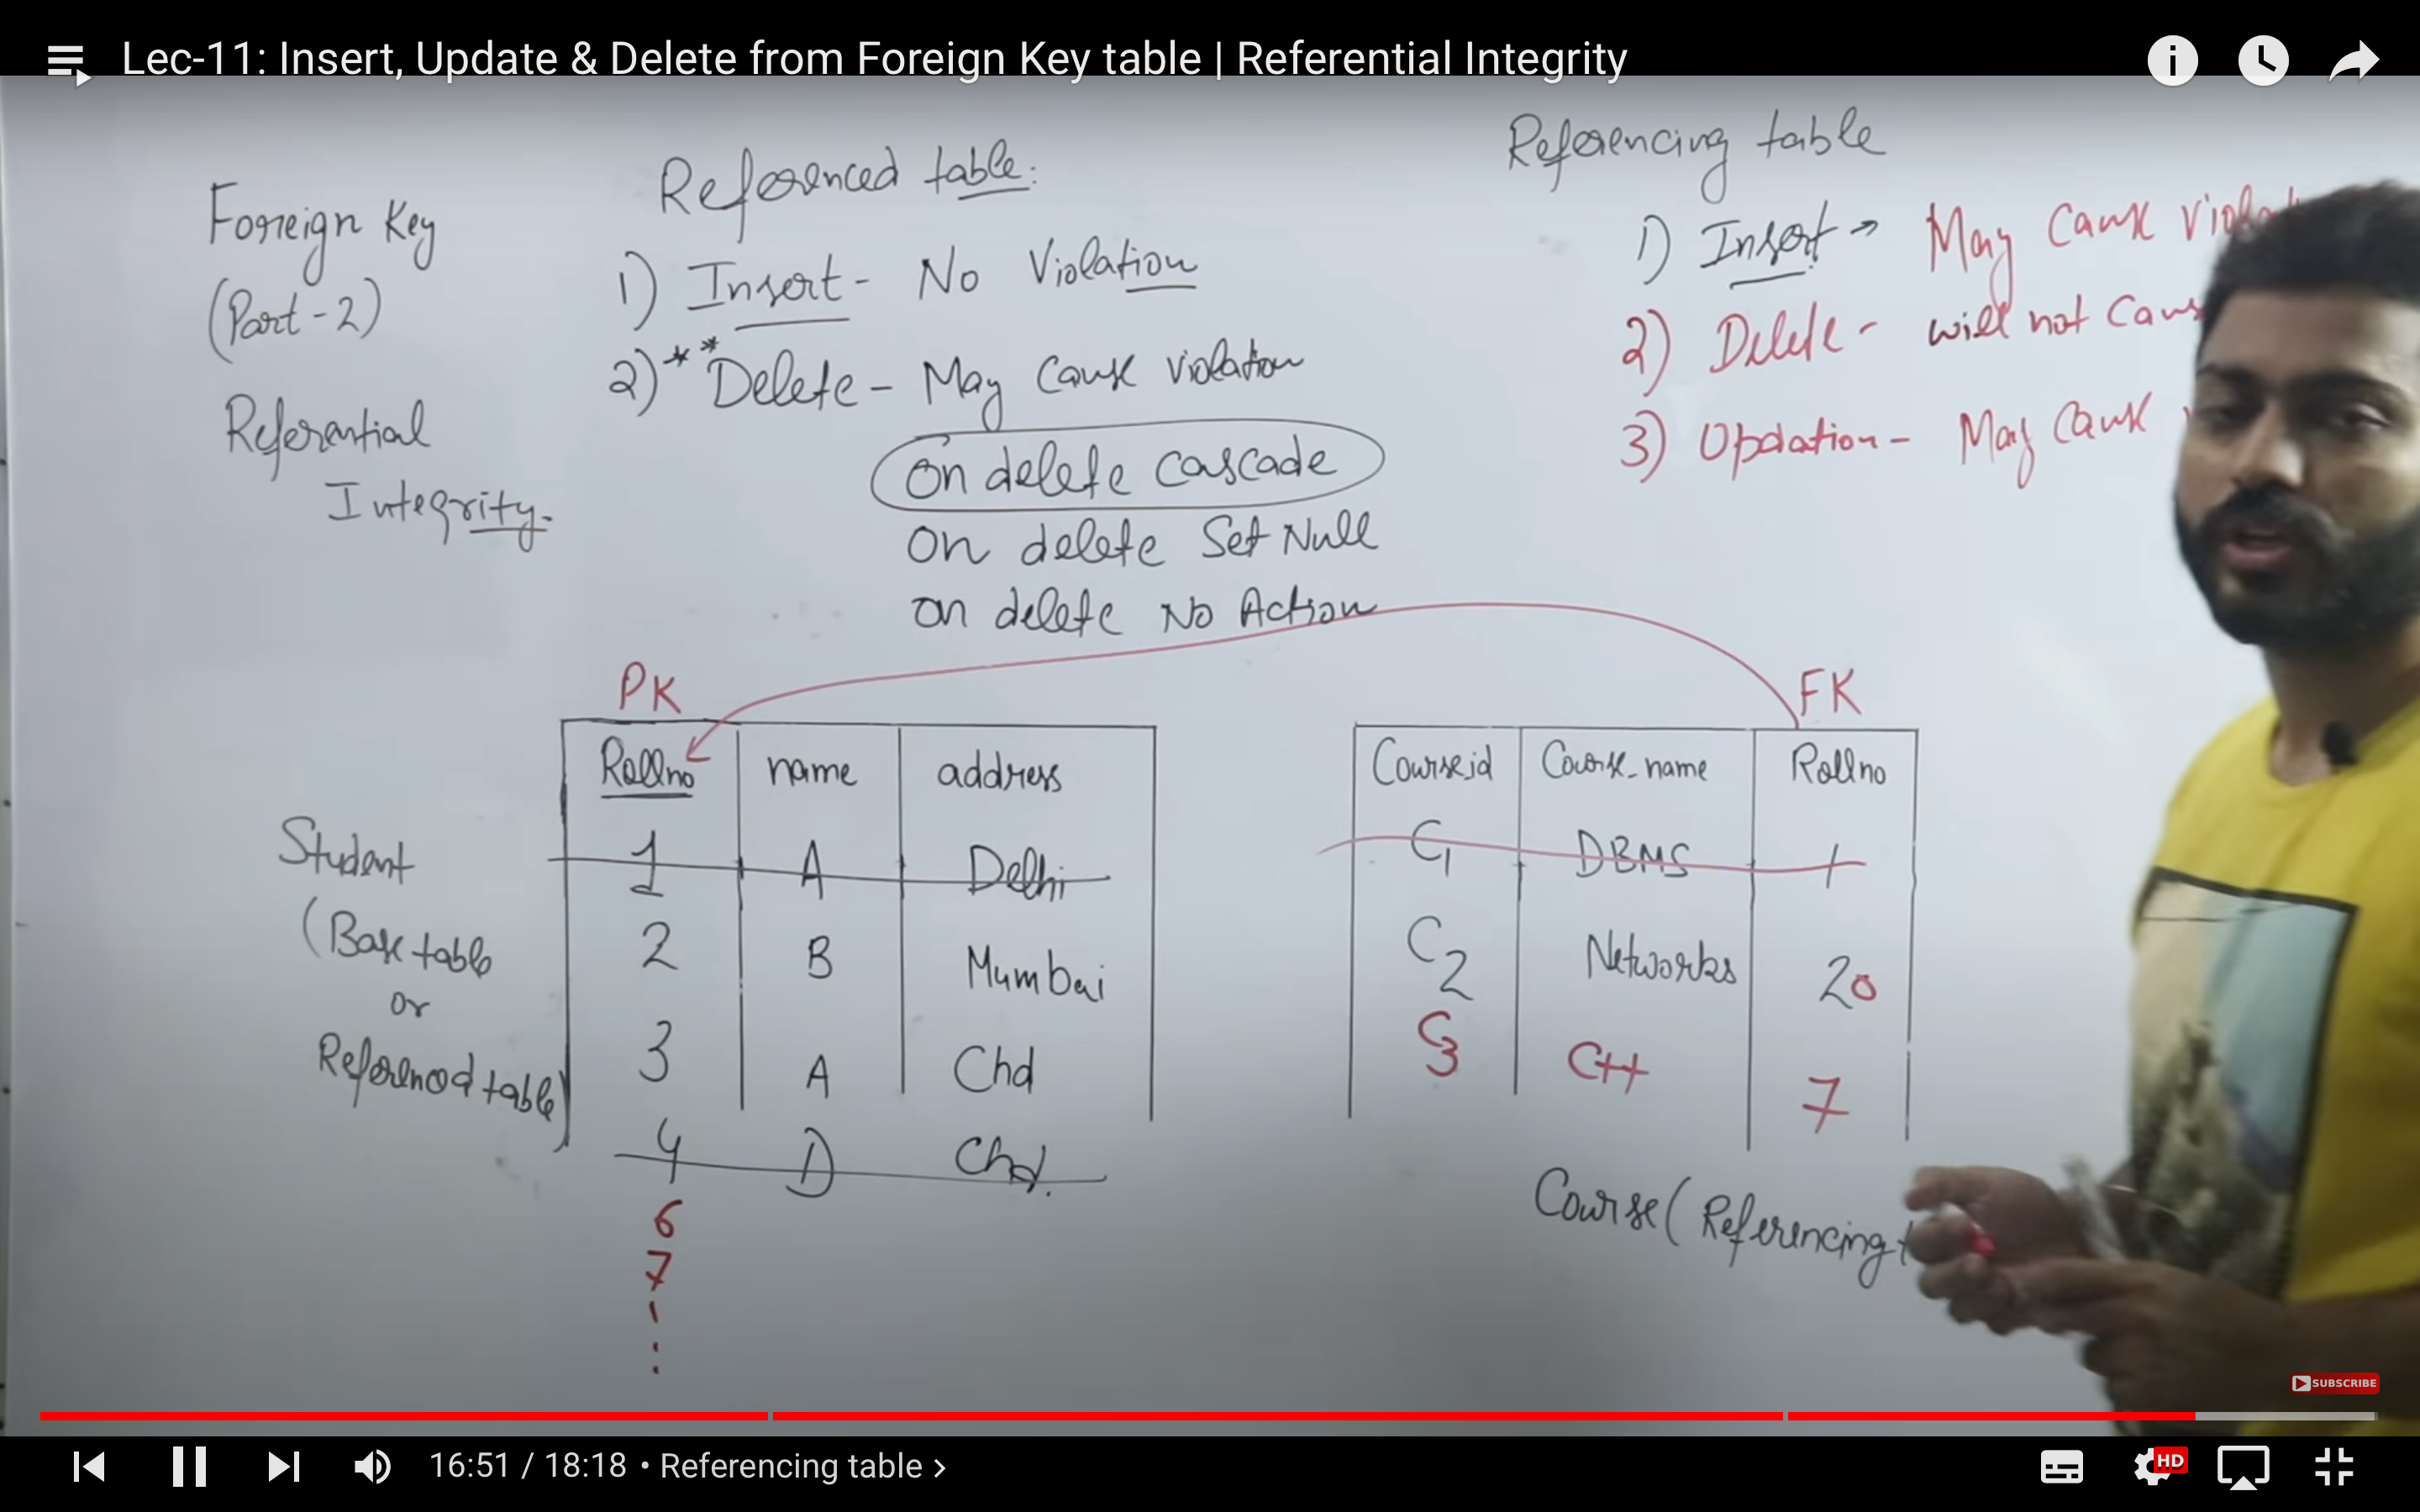 Lec-11: Insert, Update & Delete from Foreign Key table | Referential Integrity
Foreign Key
(Part-2)
Referential
Integrity.
Referenced table:
1) Insert - No Violation
2) ** Delete - May Cause violation
on delete cascade
on delete Set Null
on delete No Action
Referencing table
1) Insert → May Cause
2) Delete - will not
3) Updation - May Cause
PK
Rollno name address
1 A Delhi
2 B Mumbai
3 A Chd
4 D Chd.
6
7
Student
(Base table
or
Referenced table)
FK
Course_id Course_name Rollno
C1 DBMS 1
C2 Networks 20
C3 C++ 7
Course (Referencing
SUBSCRIBE
16:51 / 18:18 • Referencing table >
HD